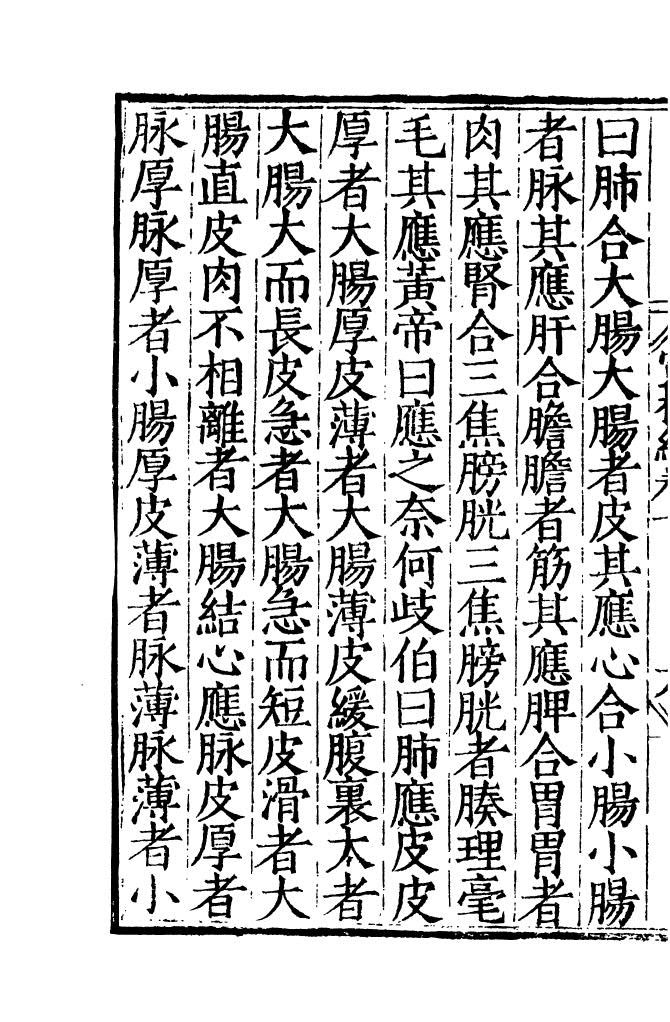 曰肺合大腸大腸者皮其應心合小腸小腸
者脉其應肝合膽膽者筋其應脾合胃胃者
肉其應腎合三焦膀胱三焦膀胱者腠理毫
毛其應黃帝曰應之奈何歧伯曰肺應皮皮
厚者大腸厚皮薄者大腸薄皮緩腹裏大者
大腸大而長皮急者大腸急而短皮滑者大
腸直皮肉不相離者大腸結心應脉皮厚者
脉厚脉厚者小腸厚皮薄者脉薄脉薄者小